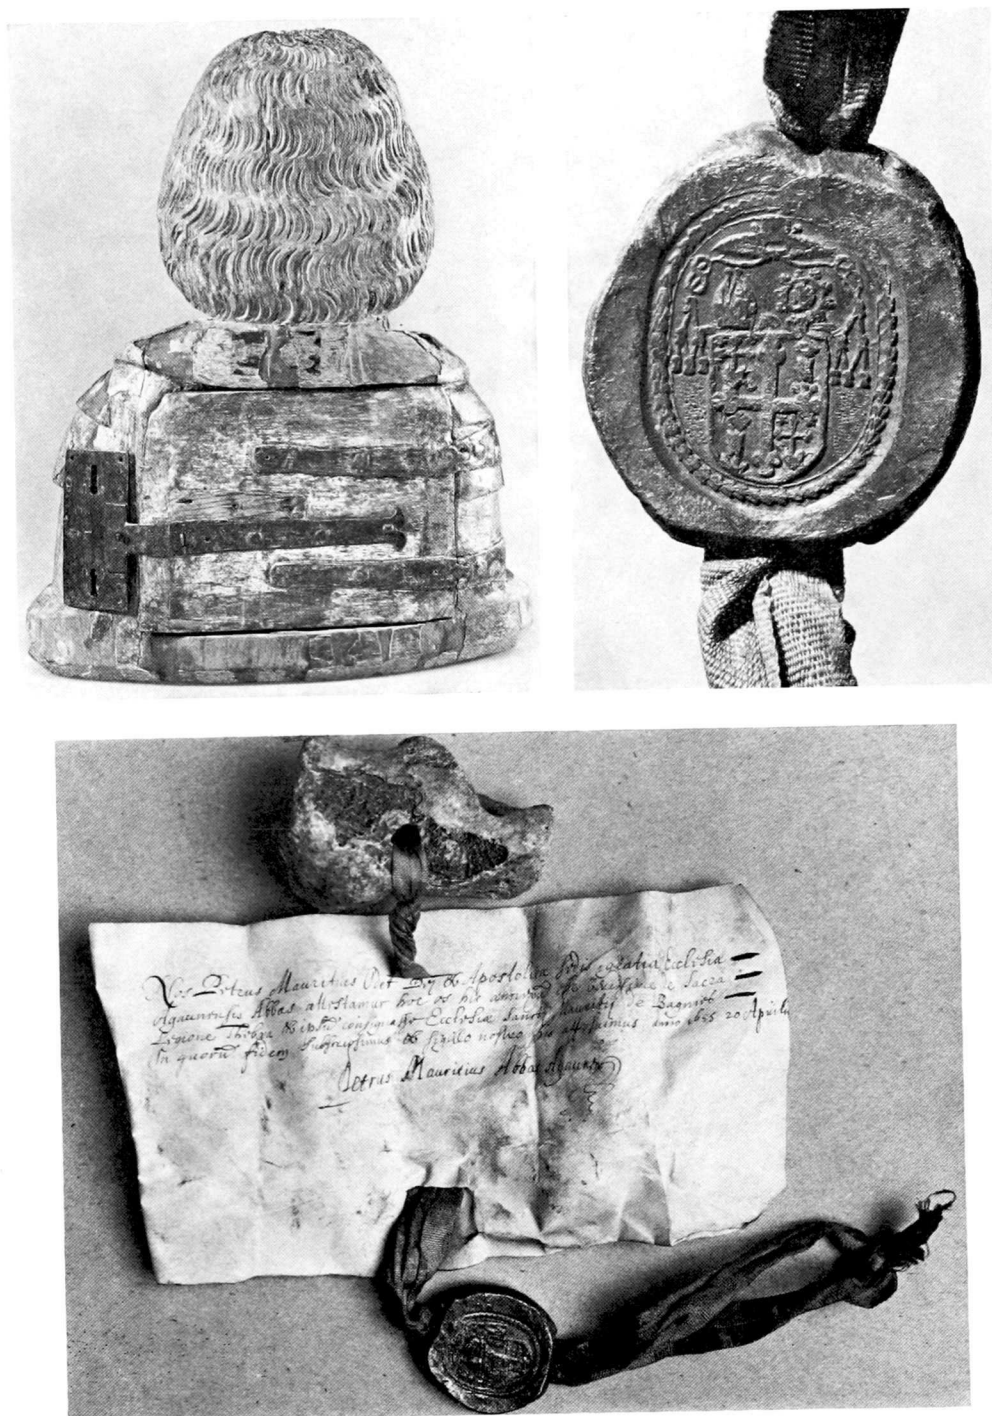 Nos Petrus Mauritius Odet Dey & Apostolica Sedis gratia Ecclesia
Agaunensis Abbas attestamur hoc os his e Sacra
Legione Thebea & ipsū consignasse Ecclesiæ Sancti Mauritij de Bagnies
In quorū fidem subscripsimus & sigillo nostro his anno 1655 20 Aprilis
Petrus Mauritius Abbas Agaunēs